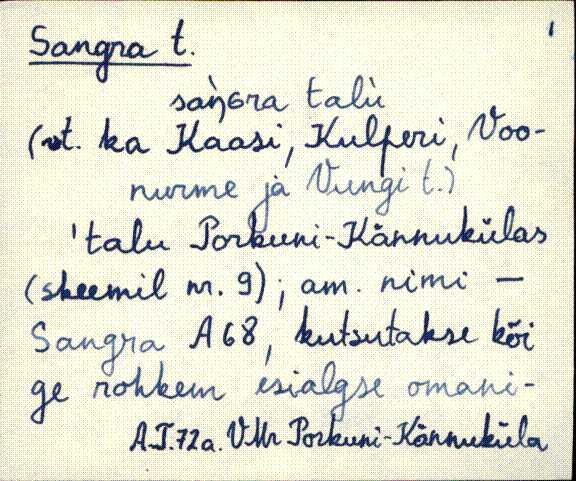 Sangra t.
saŋ̀ɢra talù
(vt. ka Kaasi, Kulperi, Voo-
nurme ja Vungi t.)
'talu Porkuni-Kännukülas
(skeemil nr. 9); am. nimi —
Sangra A 68, kutsutakse kõi
ge rohkem esialgse omani-
A.T. 72a. VMr Porkuni-Kännuküla